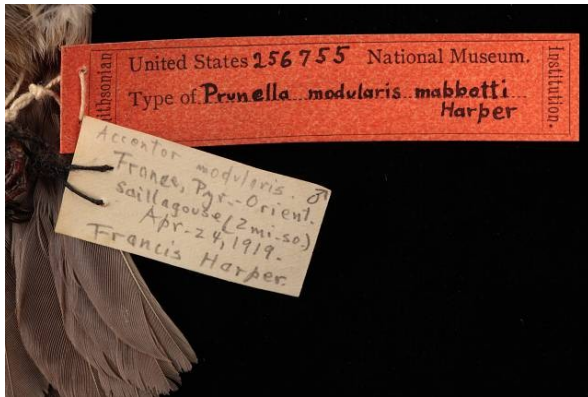 United States 256755 National Museum.
Type of Prunella modularis mabbotti
Harper
Smithsonian
Institution.
Accentor modularis. ♂
France, Pyr.-Orient.
Saillagouse (2 mi. so.)
Apr. 24, 1919.
Francis Harper.